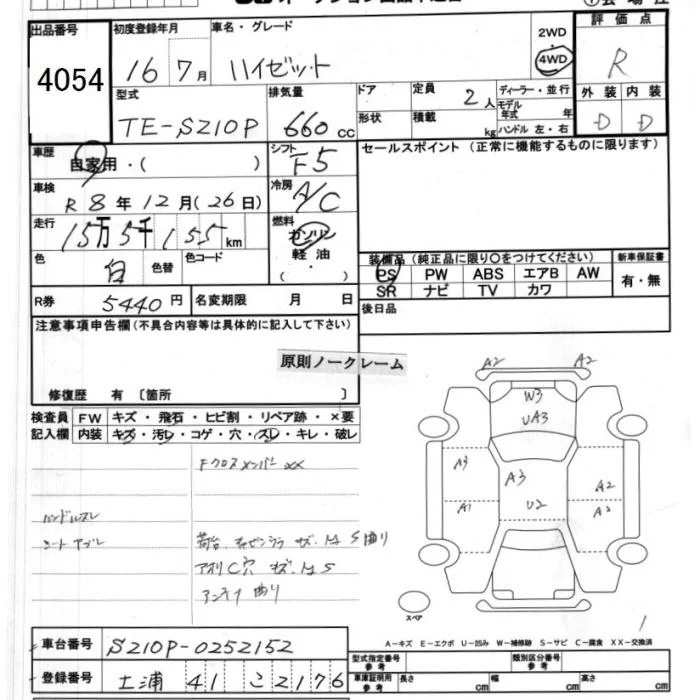 出品番号
4054
初度登録年月
16年7月
車名・グレード
ハイゼット
2WD
4WD
評価点
R
型式
TE-S210P
排気量
660cc
ドア
形状
定員
2人
積載
kg
ディーラー・並行
モデル年式 年
ハンドル 左・右
外装
内装
D
D
車歴
自家用・( )
シフト
F5
セールスポイント（正常に機能するものに限ります）
車検
R 8年12月(26日)
冷房
A/C
走行
15万5千155km
燃料
ガソリン
軽油
( ・ )
色
白
色替
色コード
装備品（純正品に限り○をつけてください）
PS PW ABS エアB AW
SR ナビ TV カワ
新車保証書
有・無
R券
5440円
名変期限 月 日
後日品
注意事項申告欄(不具合内容等は具体的に記入して下さい)
原則ノークレーム
修復歴 有〔箇所 〕
検査員記入欄
FW キズ・飛石・ヒビ割・リペア跡・×要
内装 キズ・汚レ・コゲ・穴・スレ・キレ・破レ
Fクロスメンバー XX
ハンドルスレ
シートヤブレ
荷台
S 曲り
アオリC穴 キズ
S
曲り
A2 A2
W3
UA3
A3
A3
A2
A1
U2
A2
スペア
1
A-キズ E-エクボ U-凹み W-補修跡 S-サビ C-腐食 XX-交換済
車台番号
S210P-0252152
登録番号
土浦 41 こ 2176
型式指定番号
参考
類別区分番号
参考
車庫証明用
参考
長さ cm
幅 cm
高さ cm